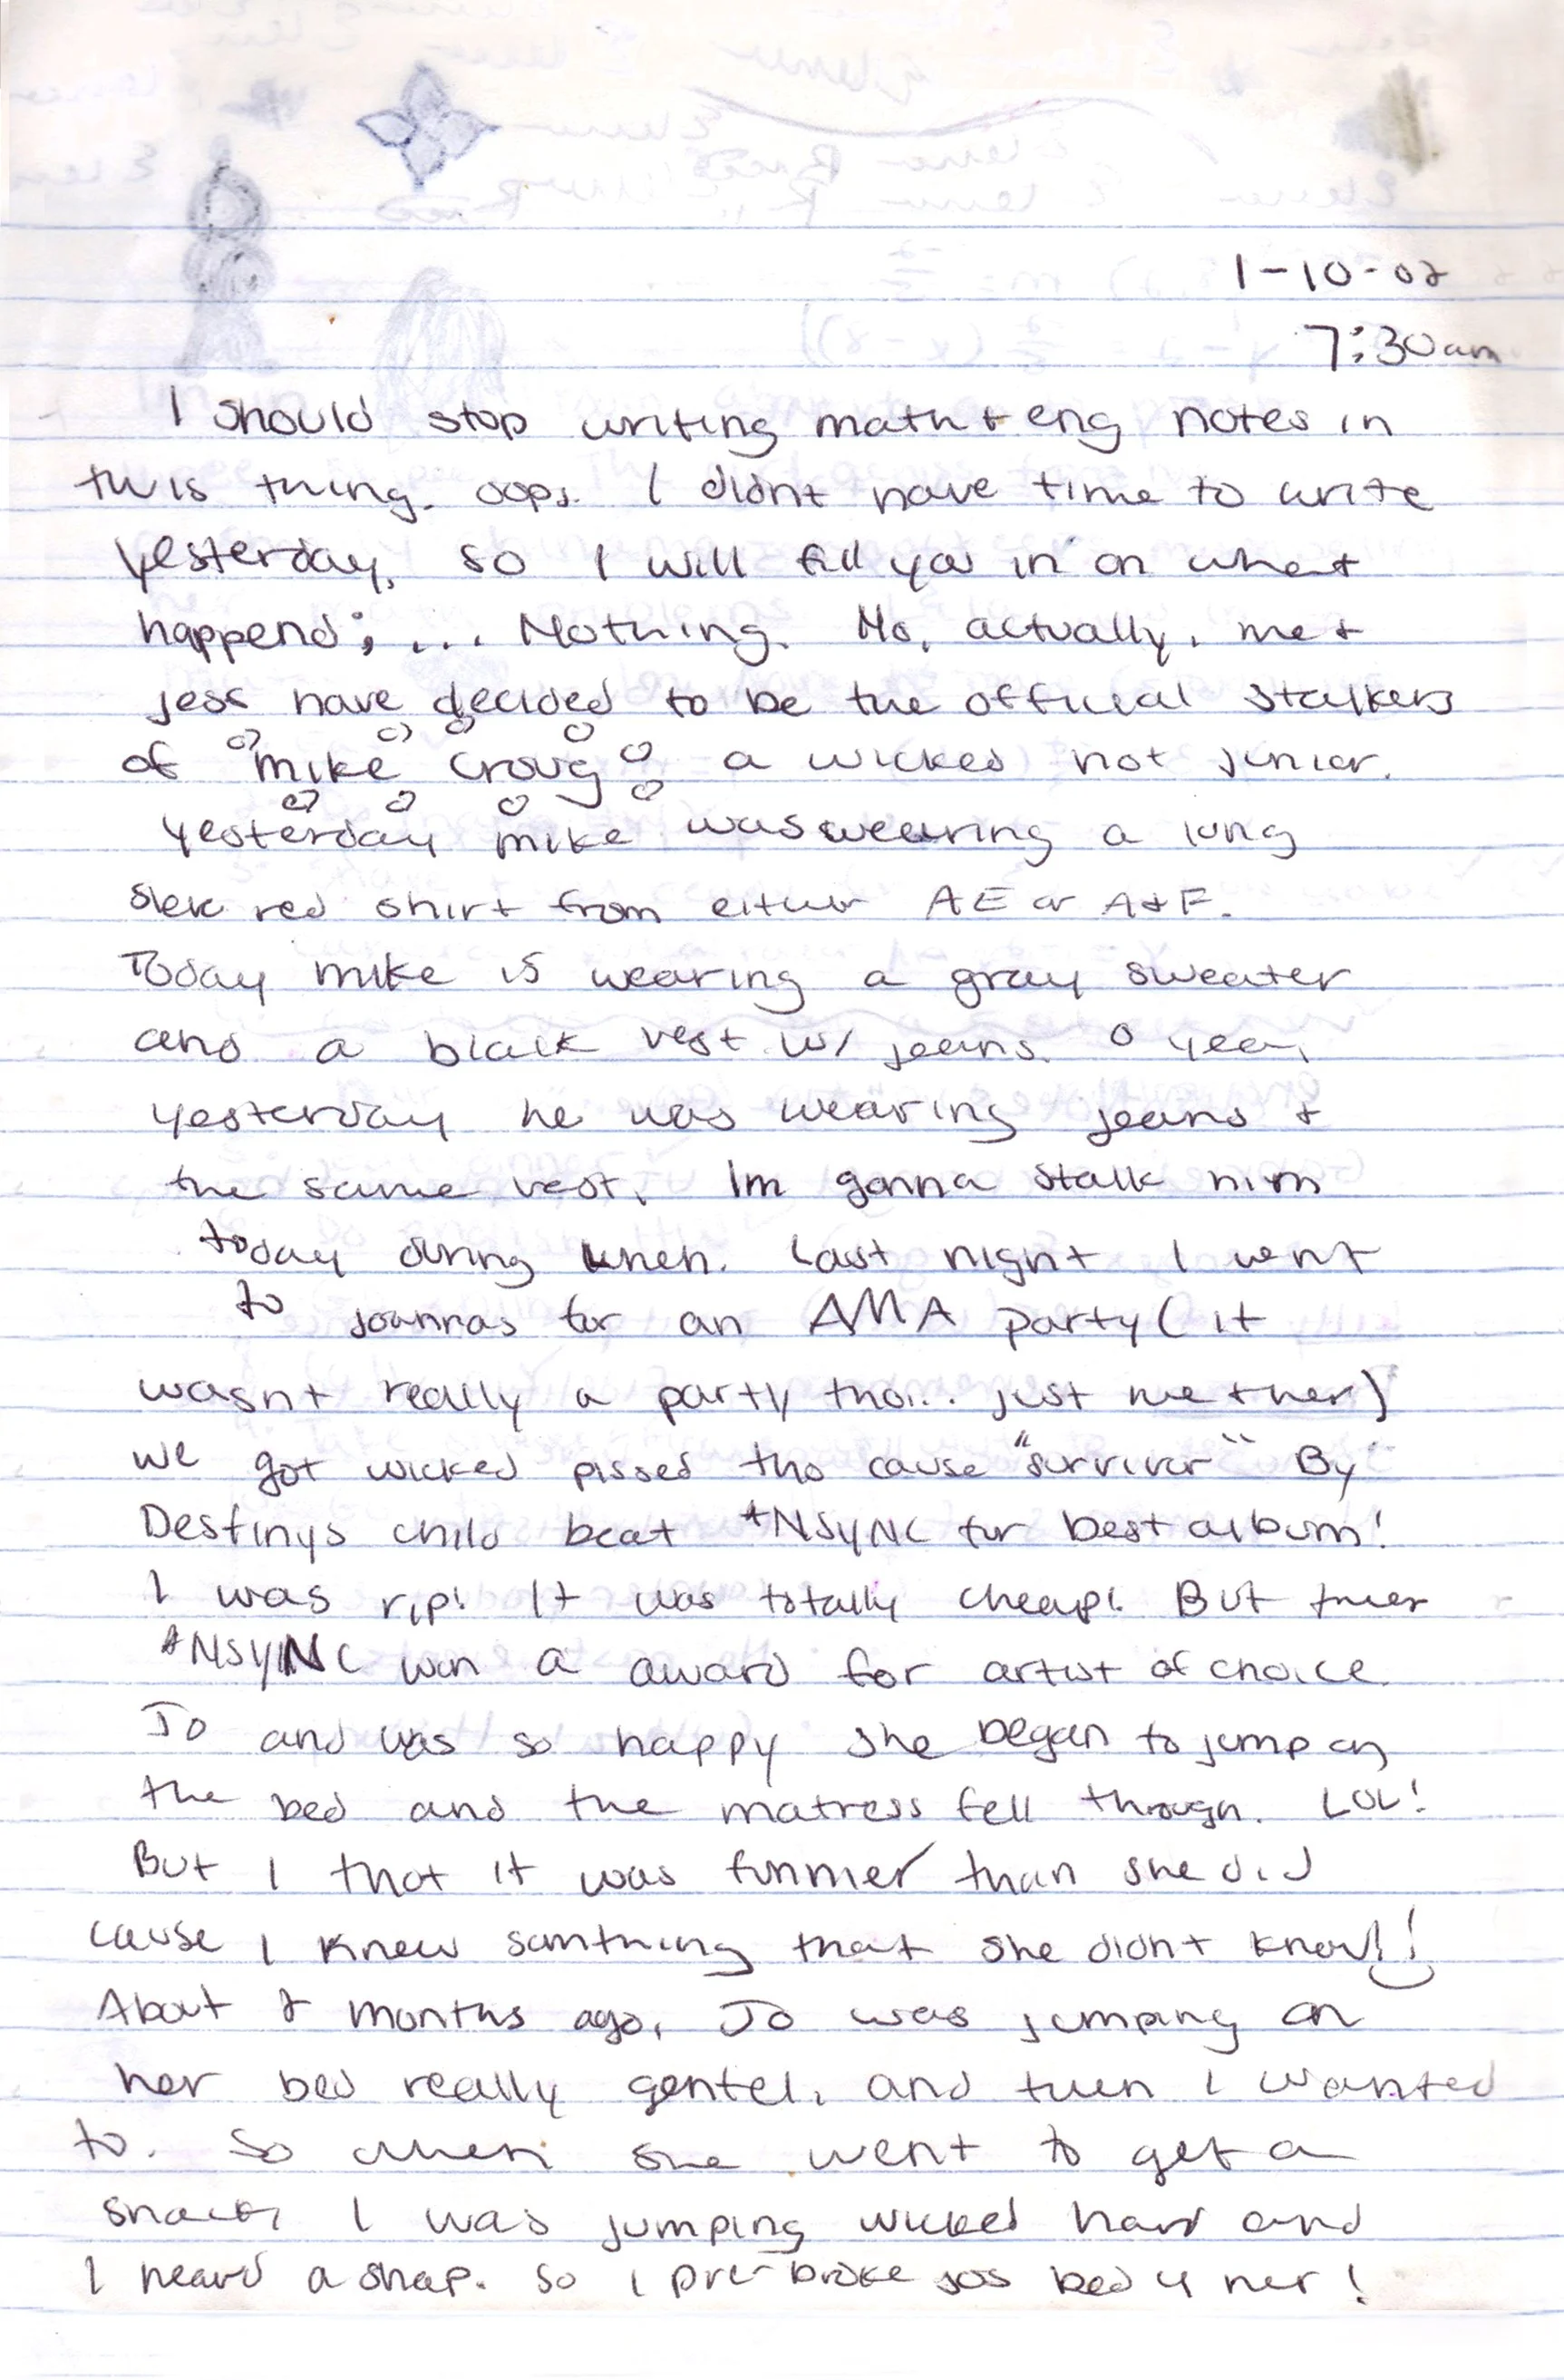 1-10-02
7:30am
I should stop writing math + eng notes in
this thing. oops. I didnt have time to write
yesterday, so I will fill you in on what
happend; ... Nothing. No, actually, me +
jess have decided to be the official stalkers
of mike Croug a wicked hot junior.
yesterday mike was wearing a long
slev red shirt from either AE or A+F.
Today mike is wearing a gray sweater
and a black vest w/ jeans. O yea,
yesterday he was wearing jeans +
the same vest. Im gonna stalk him
today during lunch. Last night I went
to Joannas for an AMA party (it
wasnt really a party tho... just me + her)
we got wicked pissed tho cause "survivor" By
Destinys child beat *NSYNC for best album!
I was rip! It was totally cheap! But
*NSYNC won a award for artist of choice.
Jo and was so happy she began to jump on
the bed and the matress fell through. LOL!
But I thot it was funnier than she did
cause I knew somthing that she didnt know!!
About 2 months ago, Jo was jumping on
her bed really gentel, and then I wanted
to. So when she went to get a
snack, I was jumping wicked hard and
I heard a snap. So I pre-broke jos bed 4 her!